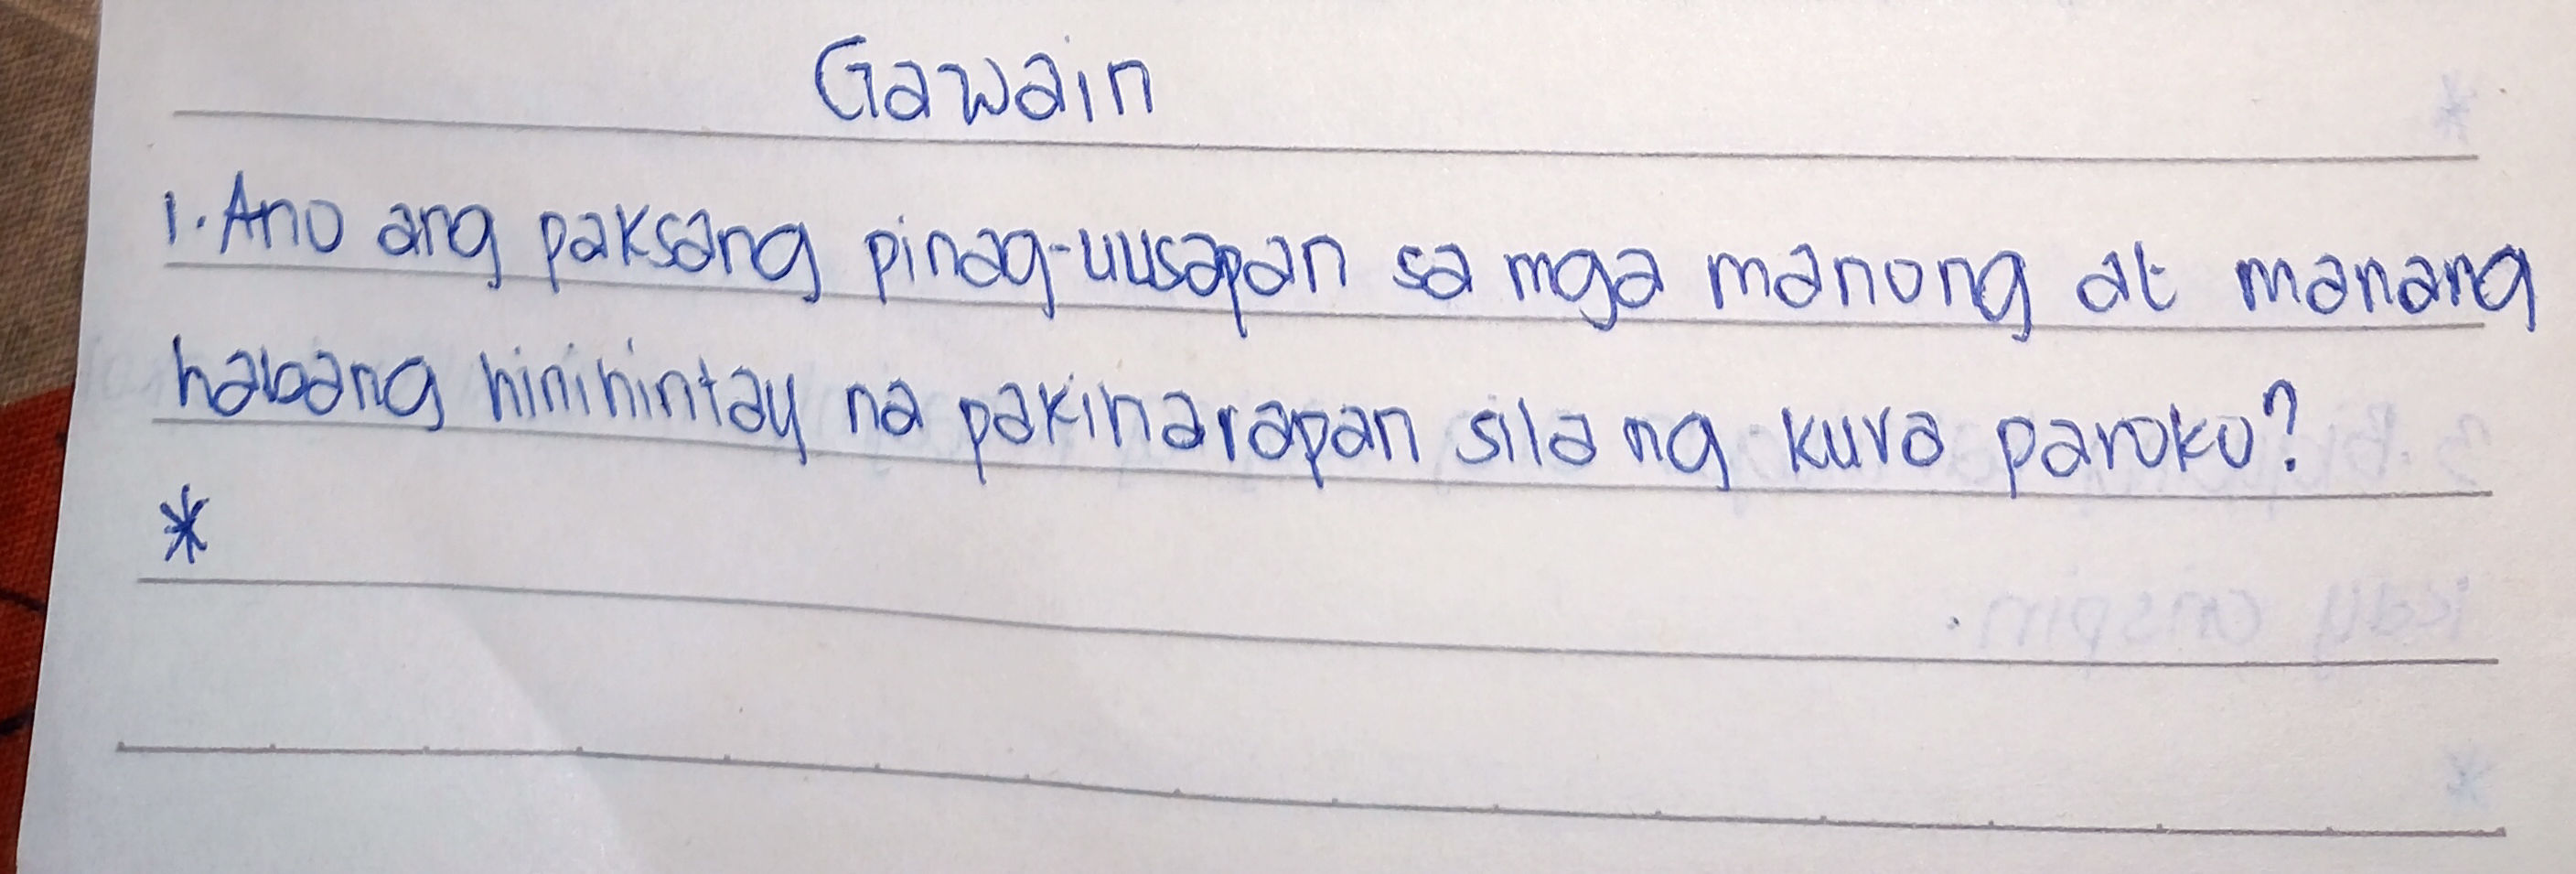 Gawain
1. Ano ang paksang pinag-uusapan sa mga manong at manang
habang hinihintay na pakiharapan sila ng kura paroko?
*